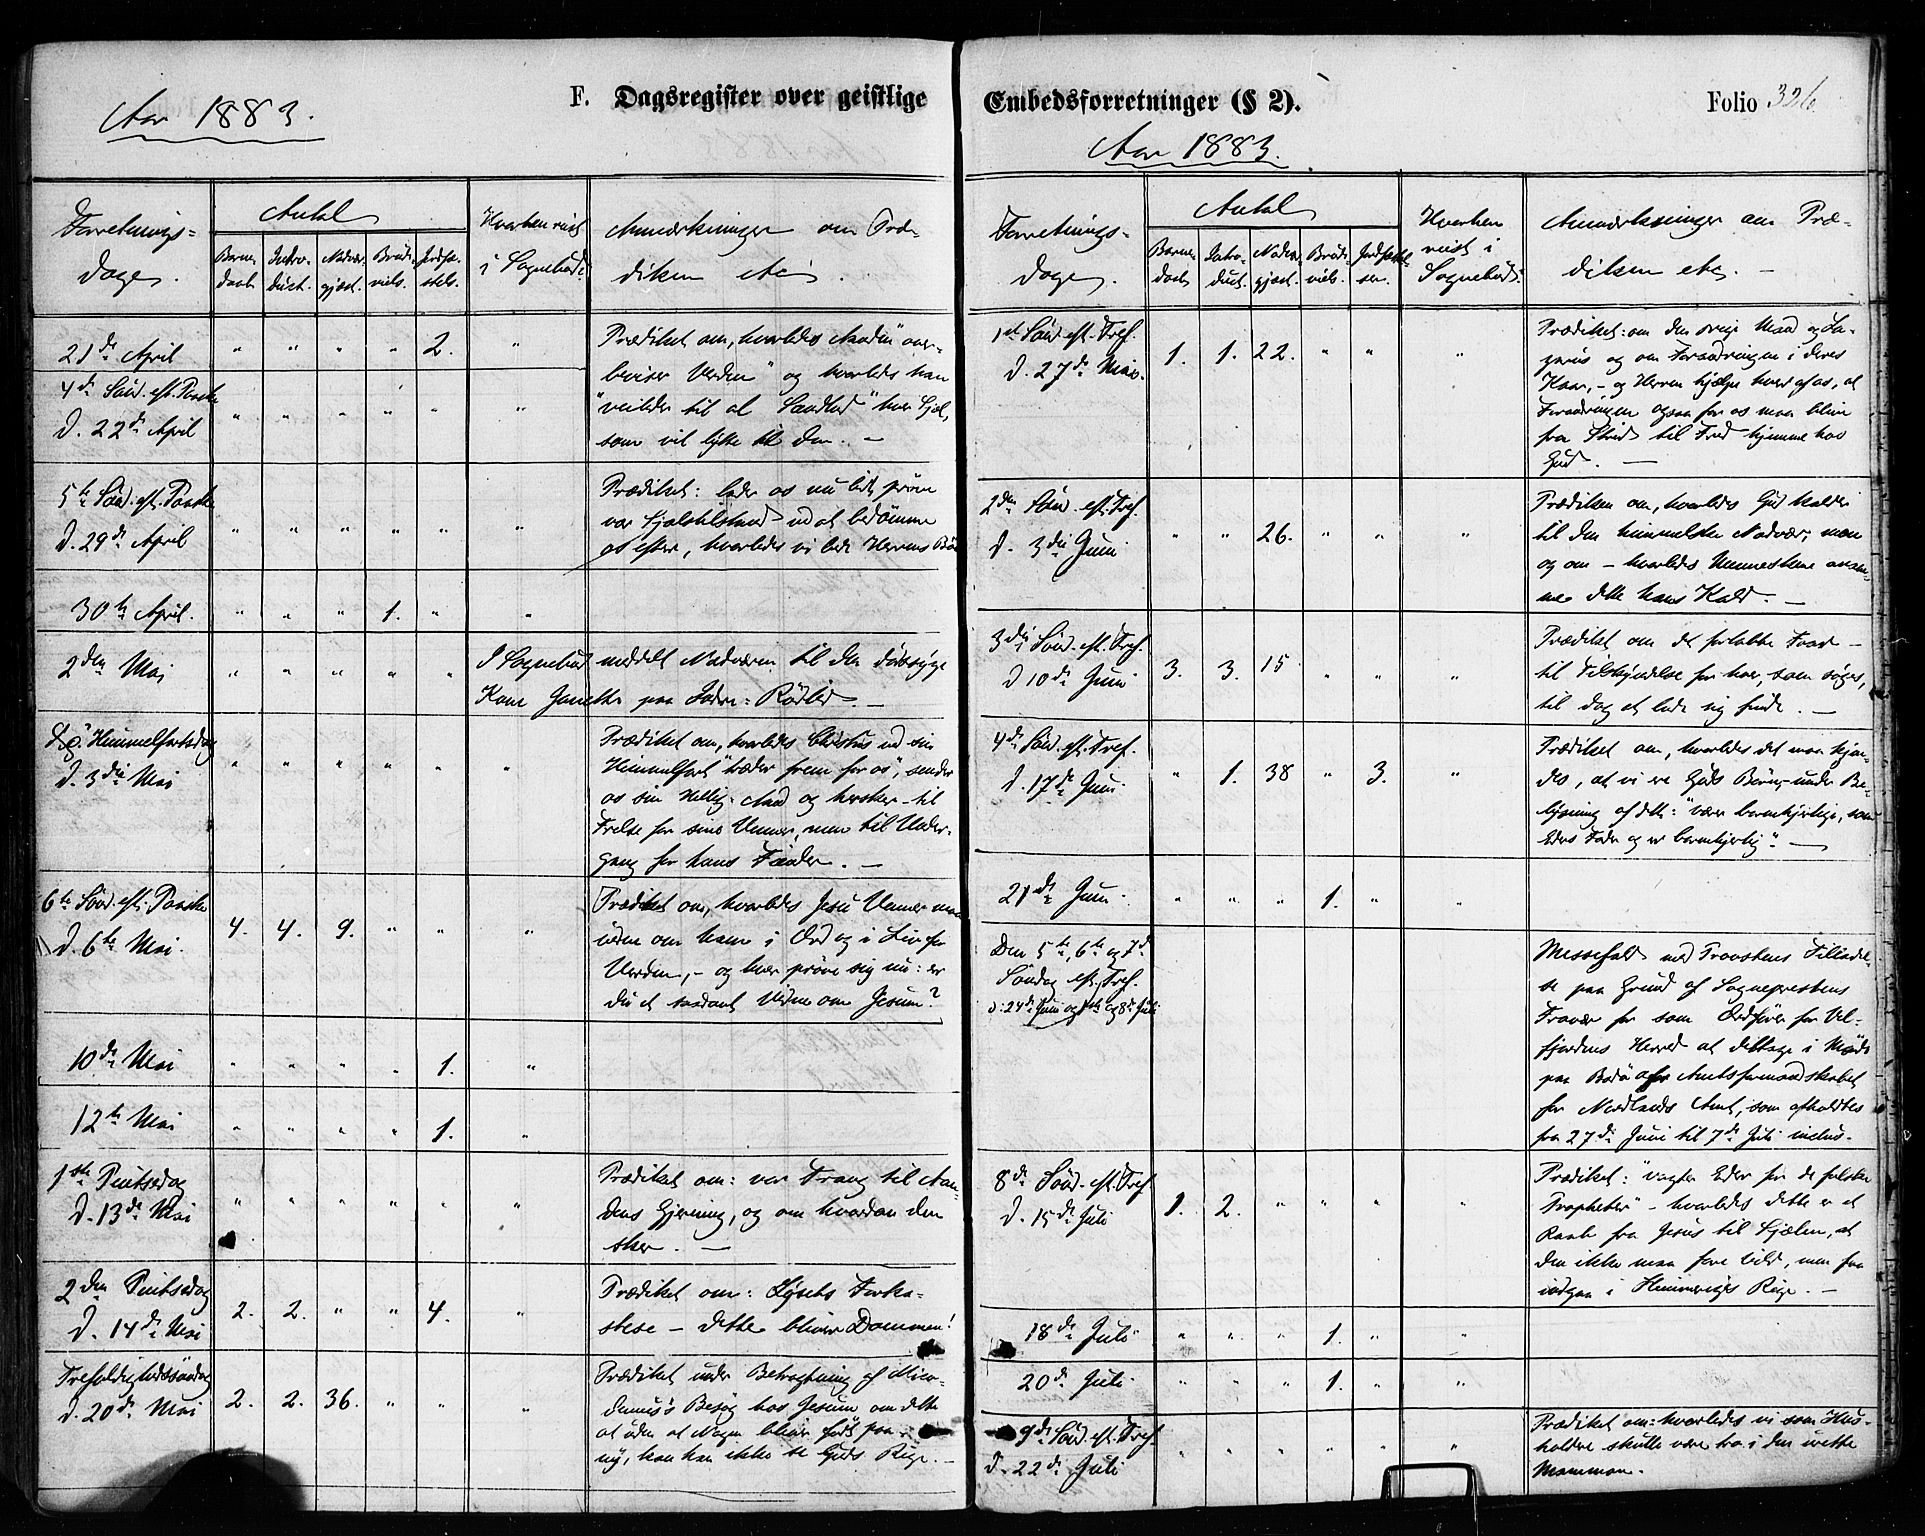 F. Dagsregister over geistlige
Aar 1883.
Forretnings-
dage.
Antal
Barne-
daab
Intro-
duct.
Nadver-
gjest.
Brude-
viels.
Jordfæ-
stels.
Hvorhen reist
i Sognebud.
Anmærkninger om Præ-
diken etc.
21de April " " " " 2. "
4de Sønd. eft. Paaske
d. 22de April " " " " " "
Prædiket om, hvorledes Aanden "over-
beviser Verden" og hvorledes han
"veileder til al Sandhed" hver Sjæl,
som vil lytte til den. —
5te Sønd. eft. Paaske
d. 29de April " " " " " "
Prædiket: lader os nu lidt prøve
vor Sjælstilstand ved at bedømme
os efter, hvorledes vi bede Herrens Bøn
30te April. " " " 1. " "
2den Mai " " " " "
I Sognebud meddelt Nadveren til den dødssyge
Kone paa Indre: Rødlid. —
Xsti Himmelfartsdag
d. 3die Mai " " " " " "
Prædiket om, hvorledes Christus ved sin
Himmelfart "træder frem for os", sender
os sin Hellig-Aand og hersker til
Frelse for sine Venner, men til Under-
gang for hans Fiender. —
6te Sønd. eft. Paaske
d. 6te Mai. 4. 4. 9. " " "
Prædiket om, hvorledes Jesu Venner maa
vidne om ham i Ord og i Liv for
Verden, - og hver prøve sig nu: er
du et saadant Vidne om Jesum?
10de Mai " " " " 1. "
12te Mai " " " " 1. "
1ste Pintsedag
d. 13de Mai " " " " " "
Prædiket om: vor Trang til Aan-
dens Gjerning, og om hvordan den
sker. —
2den Pintsedag
d. 14de Mai 2. 2. " " 4. "
Prædiket om: Lysets Forka-
stelse — dette bliver Dommen!
Trefoldighedssøndag
d. 20de Mai 2. 2. 36. " " "
Prædiket under Betragtning af Nico-
demus's Besøg hos Jesum om dette
at uden at Nogen bliver født paa
ny, kan han ikke se Guds Rige. —
Embedsforretninger (§ 2).
Folio 326
Aar 1883.
Forretnings-
dage.
Antal
Barne-
daab
Intro-
duct.
Nadver-
gjest.
Brude-
viels.
Jordfæstel-
ser.
Hvorhen
reist i
Sognebud.
Anmærkninger om Præ-
diken etc. —
1ste Sønd. eft. Tref.
d. 27de Mai. 1. 1. 22. " " "
Prædiket: om den rige Mand og La-
zarus og om Forandringen i deres
Kaar, - og Herren hjælpe hver af os, at
Forandringen ogsaa for os maa blive
fra Strid til Fred hjemme hos
Gud. —
2den Sønd. eft. Tref.
d. 3die Juni " " 26. " " "
Prædiken om, hvorledes Gud kalder
til den himmelske Nadver,
og om - hvorledes Menneskene
dette hans Kald. —
3die Sønd. eft. Tref.
d. 10de Juni 3. 3. 15 " " "
Prædiket om det fortabte Faar -
til Tilskyndelse for hver, som søges,
til Dag at lade sig finde. —
4de Sønd. eft. Tref.
d. 17de Juni. " 1. 38 " 3. "
Prædiket om, hvorledes det maa kjen-
des, at vi ere Guds Børn - under Be-
lysning af dette: "værer barmhjertige, som
Eders Fader og er barmhjertig". —
21de Juni. " " " 1. " "
Den 5te, 6te og 7de
Søndag eft. Tref.
d. 24de Juni og 1ste og 8de Juli
Messefald med Provstens Tilladel-
se paa Grund af Sognepræstens
Fravær for som Ordfører for Vel-
fjordens Herred at deltage i Møde
paa Bodø af Amtsformandskabet
for Nordlands Amt, som afholdtes
fra 27de Juni til 7de Juli inclus.
8de Sønd. eft. Tref.
d. 15de Juli 1. 2. " " " "
Prædiket: "vogter Eder for de falske
Propheter" - hvorledes dette er et
Raab fra Jesus til Sjælen, at
den ikke maa fare vild, men faa
indgaa i Himmeriges Rige. —
18de Juli " " " 1. " "
20de Juli " " " 1. " "
9de Sønd. eft. Tref.
d. 22de Juli " " " " " "
Prædiket om: hvorledes vi som Hus-
holdere skulle være tro i den urette
Mammon.